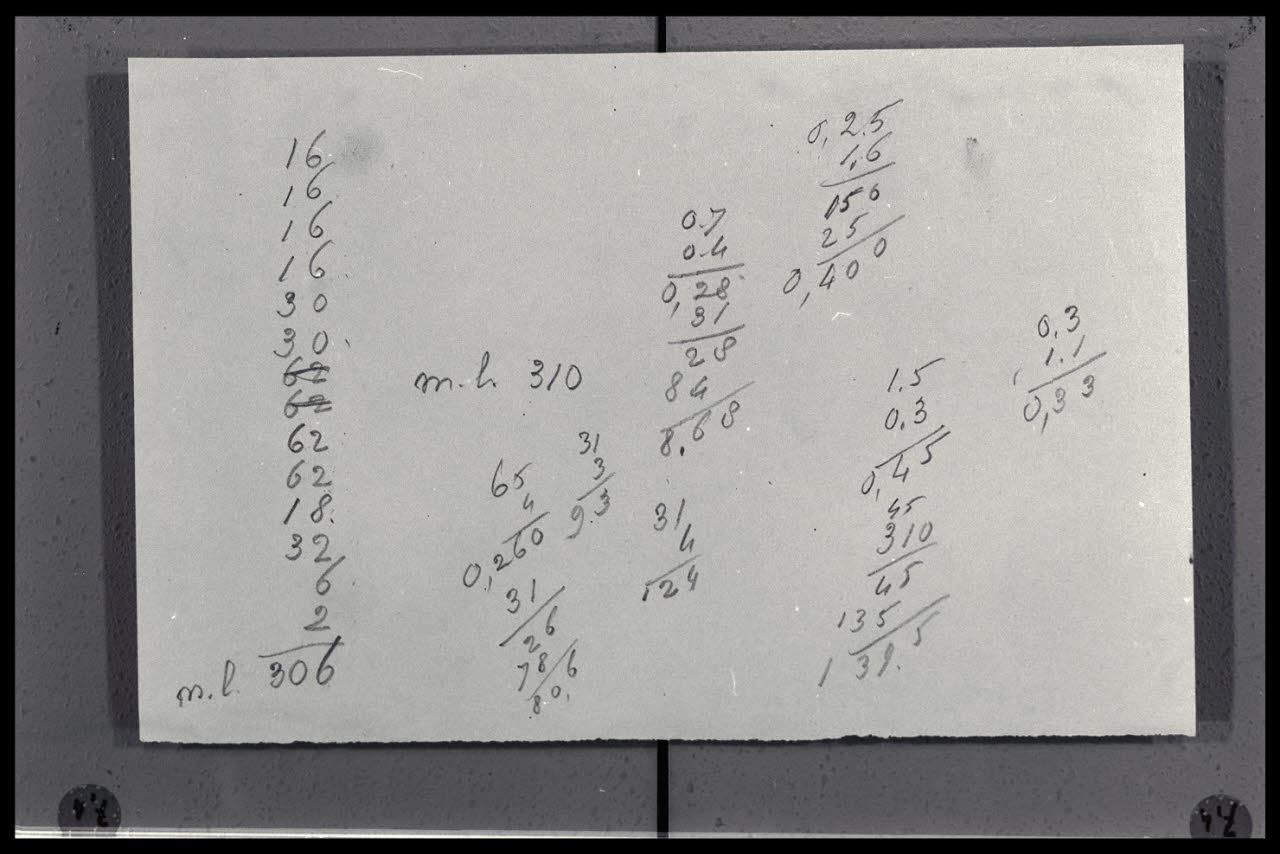 16
16
16
16
30
30
62
62
62
62
18
32
6
2
m.l. 306
m.l. 310
65
4
0,260
31
26
78 6
80,
31
3
9.3
0.7
0.4
0,28
31
28
84
8.68
31
4
124
0,2.5
1,6
150
25
0,400
1.5
0.3
0,45
45
310
45
135
139.5
0,3
1.1
0,33